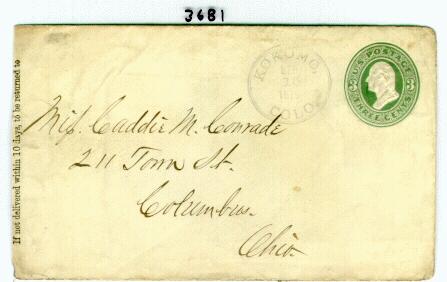 3681
KOKOMO,
COLO.
U.S. POSTAGE
THREE CENTS
If not delivered within 10 days, to be returned to
Miss Caddie M. Conrade
211 Town St.
Columbus.
Ohio.